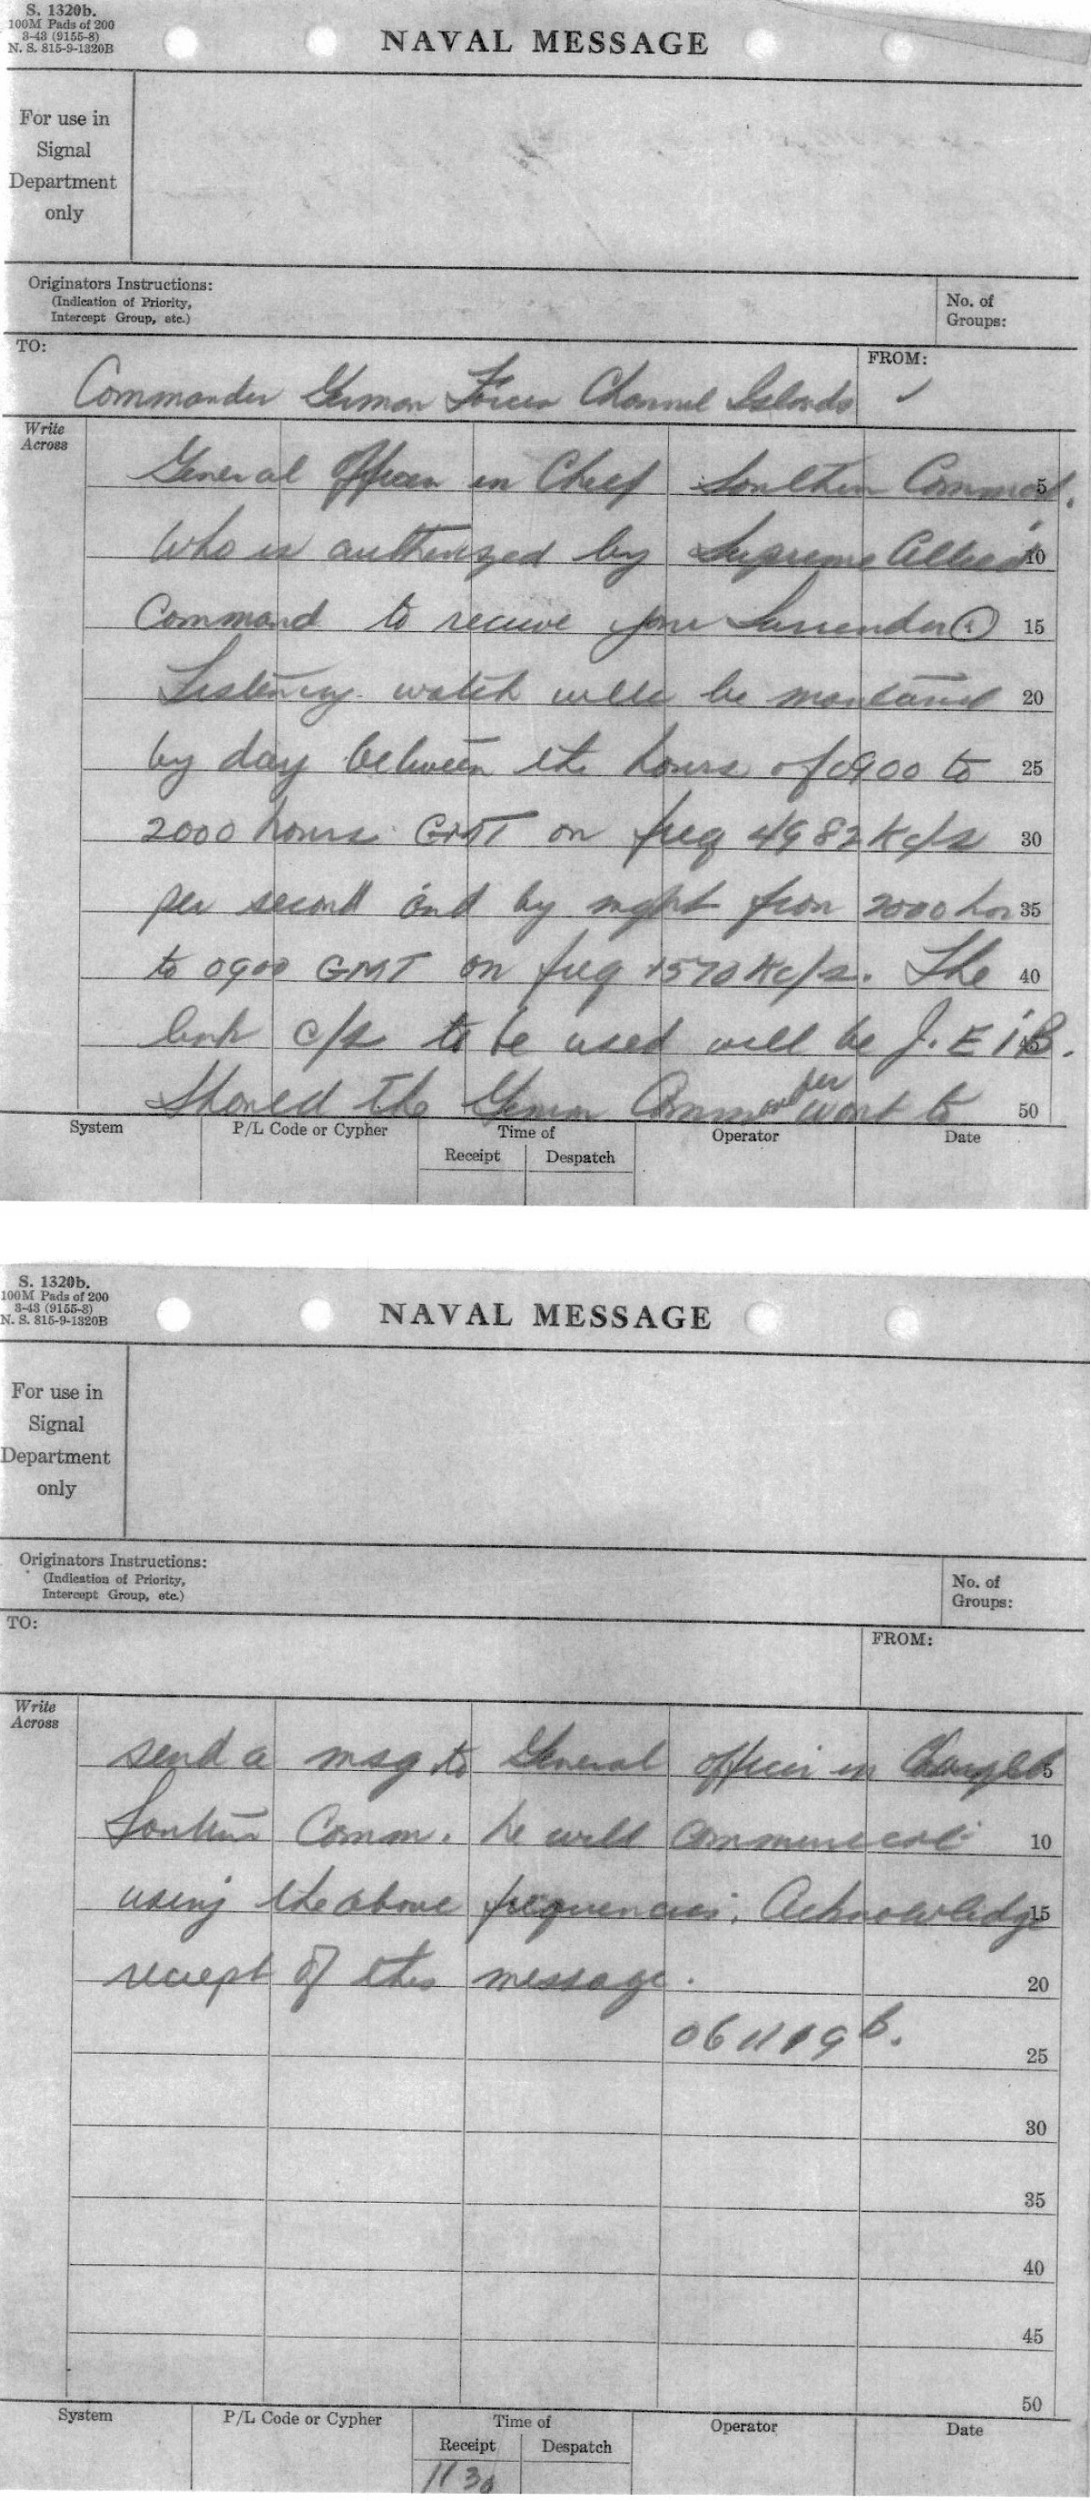 S. 1320b.
100M Pads of 200
3-43 (9155-8)
N. S. 815-9-1320B
NAVAL MESSAGE
For use in
Signal
Department
only
Originators Instructions:
(Indication of Priority,
Intercept Group, etc.)
No. of
Groups:
TO:
FROM:
Commander German Forces Channel Islands
Write
Across
General Officer in Chief Southern Command. 5
Who is authorized by Supreme Allied 10
Command to receive your Surrender 15
Listening watch will be maintained 20
by day between the hours of 0900 to 25
2000 hours GMT on freq 4982 Kc/s 30
per second and by night from 2000 hrs 35
to 0900 GMT on freq 1570 Kc/s. The 40
c/s to be used will be J. E 1 B. 45
Should the German Commander want to 50
System
P/L Code or Cypher
Time of
Receipt
Despatch
Operator
Date
S. 1320b.
100M Pads of 200
3-43 (9155-8)
N. S. 815-9-1320B
NAVAL MESSAGE
For use in
Signal
Department
only
Originators Instructions:
(Indication of Priority,
Intercept Group, etc.)
No. of
Groups:
TO:
FROM:
Write
Across
send a msg to General officer in 5
Southern Comm. he will communicate 10
using the above frequencies. Acknowledge 15
reciept of this message. 20
061119B.
25
30
35
40
45
50
System
P/L Code or Cypher
Time of
Receipt
Despatch
Operator
Date
1130